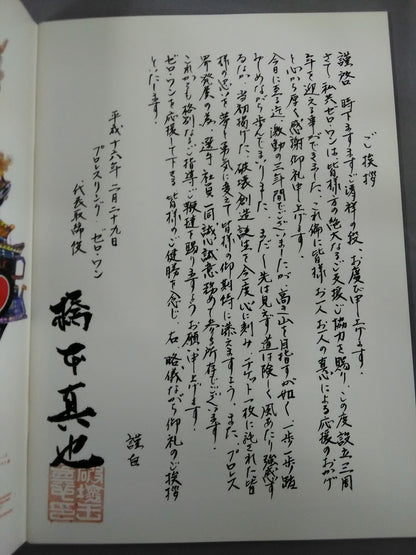 ご挨拶
謹啓 時下ますますご清祥の段、お慶び申し上げます。
さて、私共ゼロ・ワンは皆様方の絶大なるご支援、ご協力を賜り、この度設立三周
年を迎える事ができました。これ偏に皆様お一人お一人の真心による応援のおかげ
と心から厚く感謝御礼申し上げます。
今日に至る迄、激動の三年間でございましたが、高き山を目指すが如く、一歩一歩踏
みしめながら歩んでまいりました。まだ先は見えず道は険しく風あたり強き
るなか、当初掲げた、破壊創造誕生を今度心に刻み、チケット一枚に託された皆
様の思いを勇気に変えて皆様の御期待に添えますよう、また、プロレス
界発展の為、選手、社員一同誠心誠意務めて参る所存でございます。
これからも格別なるご指導ご鞭撻を賜りますようお願い申し上げます。
ゼロ・ワンを応援して下さる皆様のご健勝を念じ、右略儀ながら御礼のご挨拶
といたします。
謹白
平成十六年二月二十九日
プロレスリング ゼロ・ワン
代表取締役
橋本真也